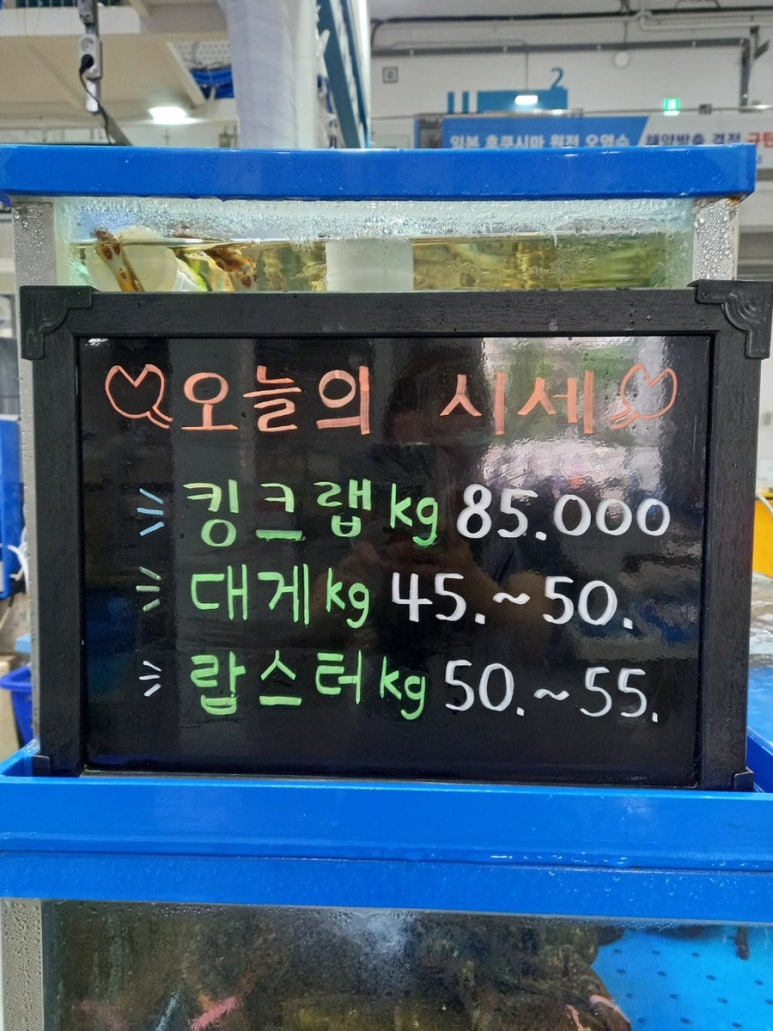 2
일본 후쿠시마 원전 오염수 해양방출 결정 규탄
오늘의 시세
킹크랩 kg 85.000
대게 kg 45.~50.
랍스터 kg 50.~55.